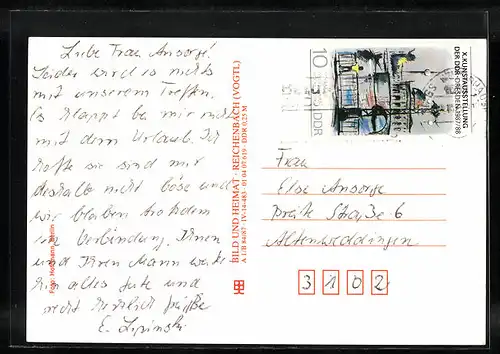 Liebe Frau Ansorge!
Leider wird es nichts
mit unserem Treffen.
Es klappt bei mir nicht
mit dem Urlaub. Ich
hoffe sie sind mir
deshalb nicht böse und
wir bleiben trotzdem
in Verbindung. Ihnen
und Ihren Mann weiter-
hin alles Gute und
recht herzlich grüßt
E. Lipinski
Foto: Hoffmann, Berlin
BILD UND HEIMAT · REICHENBACH (VOGTL)
A 1/B 84/87 IV-14-483 01 04 07 619 DDR 0,25 M
10
DDR
X. KUNSTAUSSTELLUNG
DER DDR · DRESDEN 1987/88
Frau
Else Ansorge
Breite Straße 6
Altenweddingen
3102